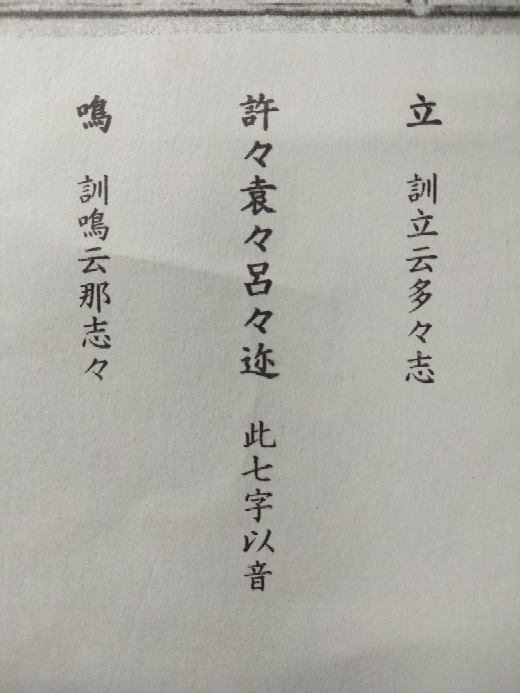 立 訓立云多々志
許々袁々呂々迩 此七字以音
鳴 訓鳴云那志々